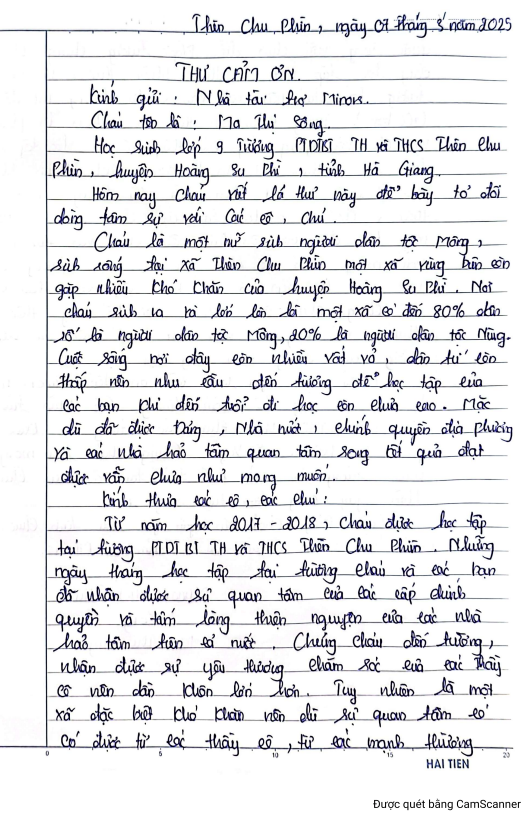 Thèn Chu Phìn, ngày 07 tháng 3 năm 2025
THƯ CẢM ƠN.
Kính gửi: Nhà tài trợ Mirors.
Cháu tên là: Ma Thị Sông.
Học sinh lớp 9 Trường PTDTBT TH và THCS Thèn Chu
Phìn, huyện Hoàng Su Phì, tỉnh Hà Giang.
Hôm nay Cháu viết lá thư này để bày tỏ đôi
dòng tâm sự với Các cô, chú.
Cháu là một nữ sinh người dân tộc Mông,
sinh sống tại xã Thèn Chu Phìn một xã vùng bản còn
gặp nhiều khó khăn của huyện Hoàng Su Phì. Nơi
cháu sinh ra và lớn lên là một xã có đến 80% dân
số là người dân tộc Mông, 20% là người dân tộc Nùng.
Cuộc sống nơi đây còn nhiều vất vả, dân trí còn
thấp nên nhu cầu đến trường để học tập của
các bạn khi đến tuổi đi học còn chưa cao. Mặc
dù đã được Đảng, Nhà nước, chính quyền địa phương
và các nhà hảo tâm quan tâm song kết quả đạt
được vẫn chưa như mong muốn.
Kính thưa các cô, các chú:
Từ năm học 2017 - 2018, cháu được học tập
tại trường PTDTBT TH và THCS Thèn Chu Phìn. Những
ngày tháng học tập tại trường cháu và các bạn
đã nhận được sự quan tâm của các cấp chính
quyền và tấm lòng thiện nguyện của các nhà
hảo tâm trên cả nước. Chúng cháu đến trường,
nhận được sự yêu thương chăm sóc của các Thầy
cô nên dần khôn lớn hơn. Tuy nhiên là một
xã đặc biệt khó khăn nên dù sự quan tâm có
có được từ các thầy cô, từ các mạnh thường
0 5 10 15 20
HẢI TIẾN
Được quét bằng CamScanner